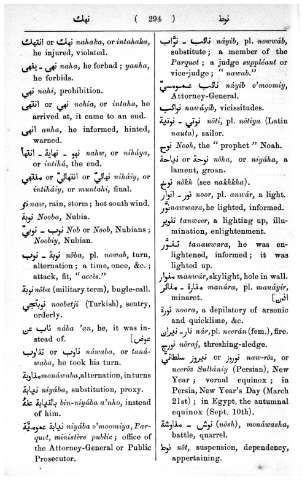 نهك ( 294 ) نوط
نهك or انتهك nahaka, or intahaka,
he injured, violated.
نهى - ينهى nahа, he forbad; yanha,
he forbids.
نهي nahi, prohibition.
or nohia, or intaha, he
arrived at, it came to an end.
انهى anha, he informed, hinted,
warned.
نهو - نهاية - انتها nahw, or niháya,
or intihá, the end.
نهائي or انتهائي or niháiy, or
intiháiy, or muntahi, final.
naw, rain, storm; hot south wind.
نوبة Nooba, Nubia.
نوب - نوبي Nob or Noob, Nubians;
Noobiy, Nubian.
نوبة - نوب nóba, pl. nowab, turn,
alternation; a time, once, &c.;
attack, fit, "accès."
نوبة nóba (military term), bugle-call.
نوبتجي noobetji (Turkish), sentry,
orderly.
ناب عن nába 'an, he, it was in-
stead of. [عوض]
ناوب or تناوب náwaba, or taná-
waba, he took his turn.
مناوبة monáwaba, alternation, in turns
نيابة niyába, substitution, proxy.
بالنيابة عنه bin-niyába a'nho, instead
of him.
نيابة عمومية niyába v'moomiya, Par-
quet, ministère public; office of
the Attorney-General or Public
Prosecutor.
نائب - نواب náyib, pl. nowwáb,
substitute; a member of the
Parquet; a judge suppléant or
vice-judge; "nawab."
نائب عمومي náyib v'moomiy,
Attorney-General.
نوائب nawáyib, vicissitudes.
نوتي - نوتية nóti, pl. nótiya (Latin
nauta), sailor.
نوح Nooh, the "prophet" Noah.
نوحة or نياحة nóha, or niyáha, a
lament, groan.
نوخ nókh (see nakhkha).
نور - انوار noor, pl. anwár, a light.
نور nawwara, he lighted, informed.
تنوير tanweer, a lighting up, illu-
mination, enlightenment.
تنور tanawwara, he was en-
lightened, informed; it was
lighted up.
منور manwar, skylight, hole in wall.
منارة - مناير manára, pl. manáyir,
minaret.
نورة noora, a depilatory of arsenic
and quicklime, &c.
نار - نيران nár, pl. neerán (fem.), fire.
نورج nóraj, threshing-sledge.
نوروز or نيروز سلطاني naw-róz, or
neeróz Sultániy (Persian), New
Year; vernal equinox; in
Persia, New Year's Day (March
21st); in Egypt, the autumnal
equinox (Sept. 10th).
نوش - مناوشة (nósh), monáwasha,
battle, quarrel.
نوط nót, suspension, dependency,
appertaining.